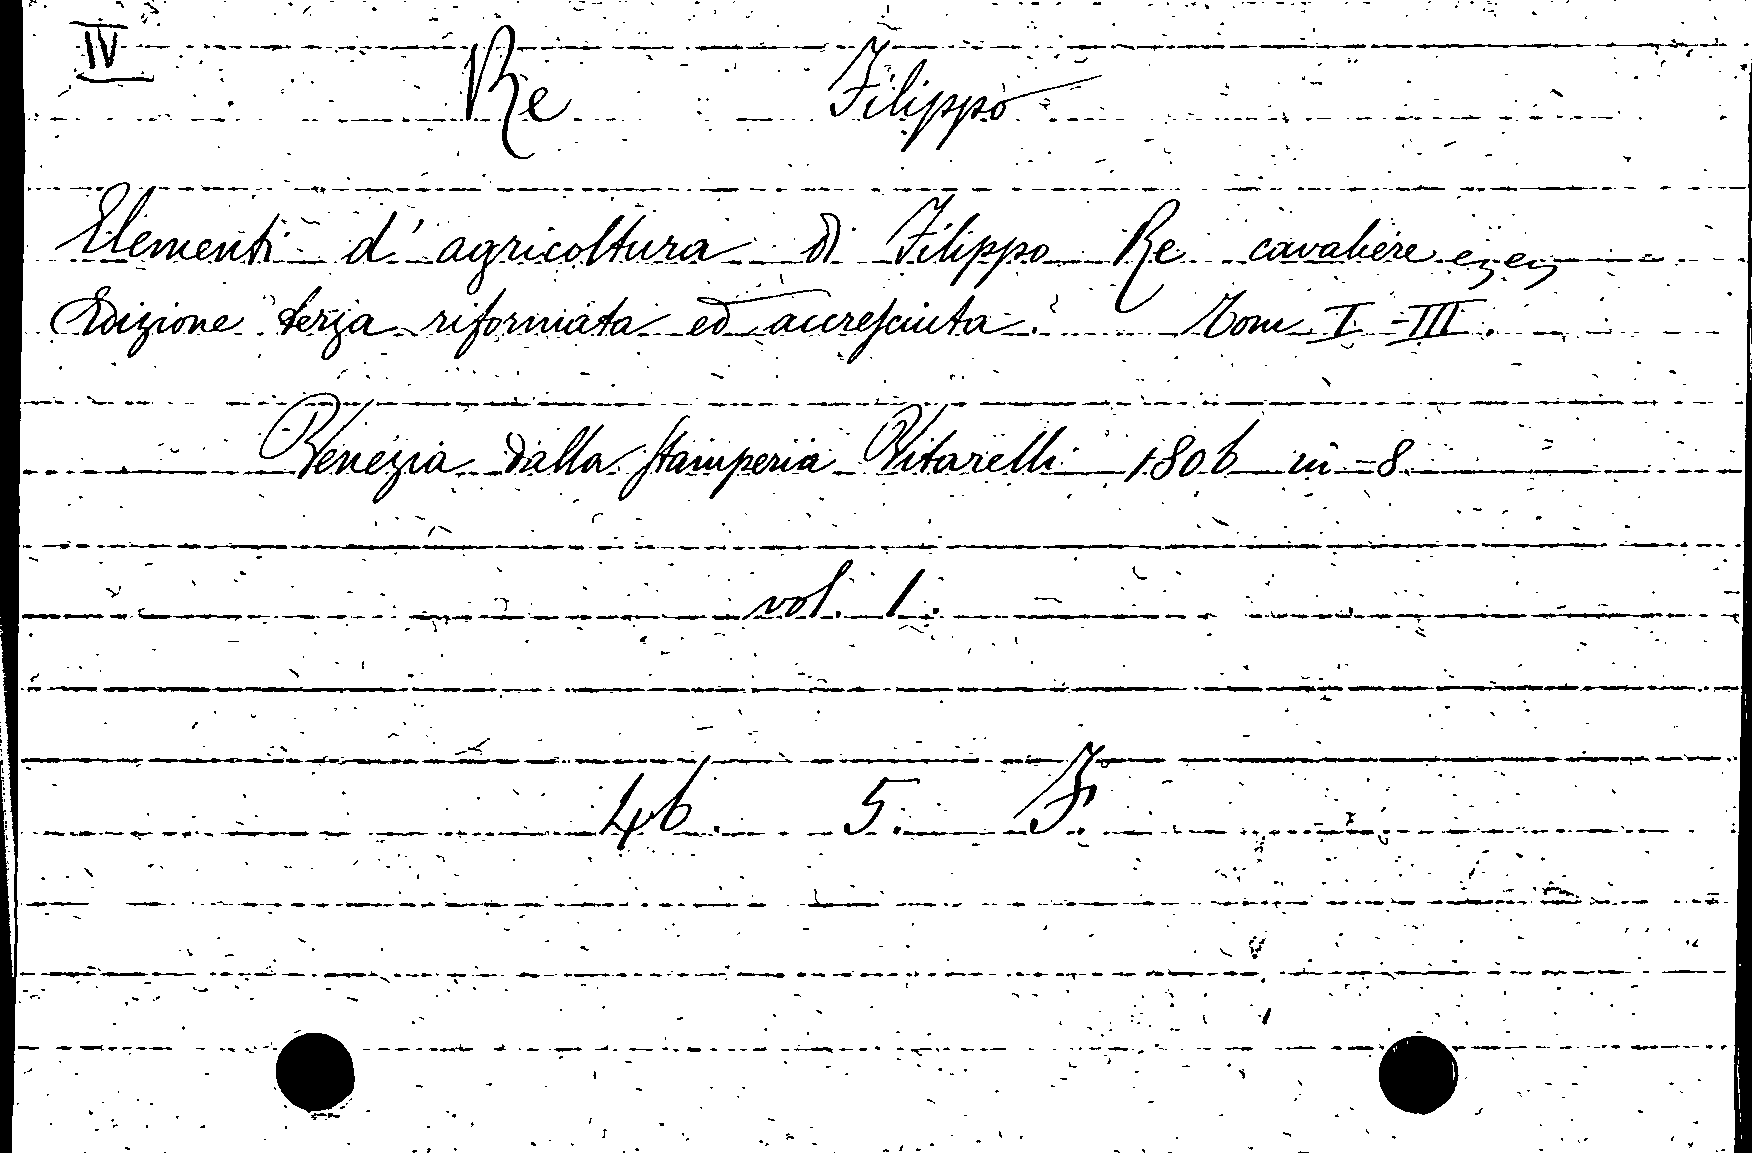 IV
Re Filippo
Elementi d'agricoltura di Filippo Re cavaliere
Edizione terza riformata ed accresciuta. Tom. I-III.
Venezia dalla stamperia Vitarelli 1806 in-8
vol. 1.
46. 5. F.